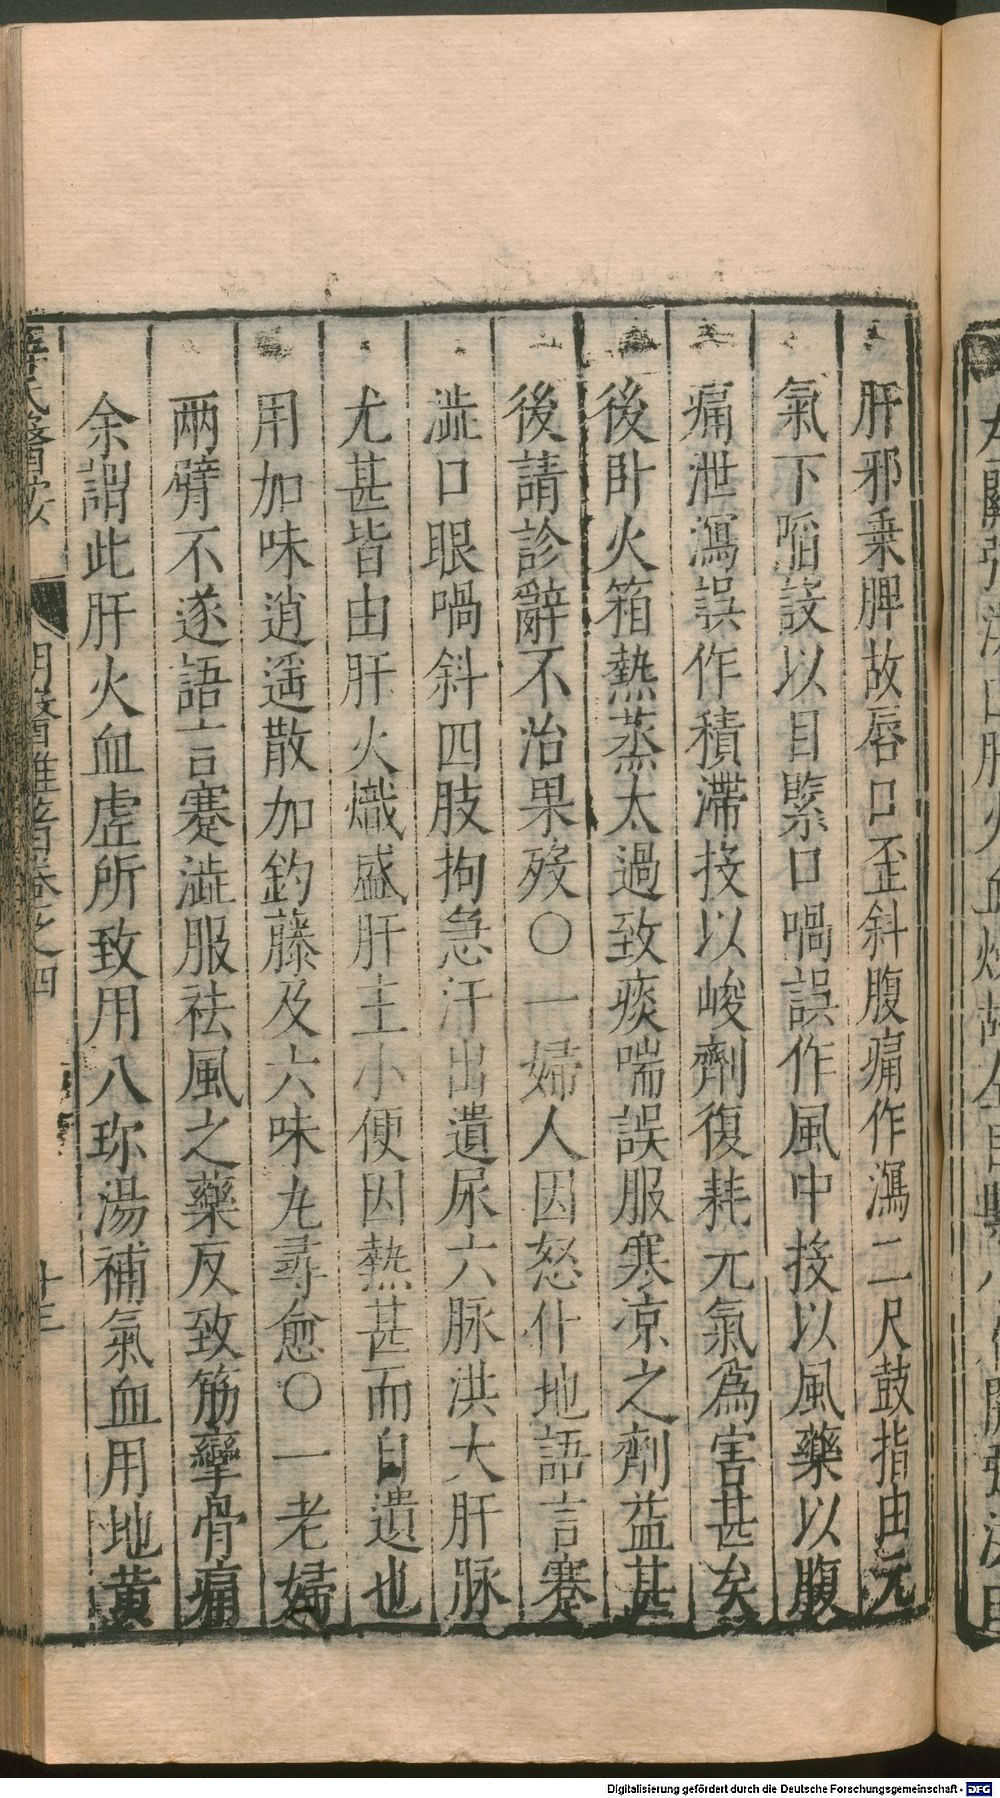 肝邪乗脾故唇口歪斜腹痛作瀉二尺鼓指由元
氣下陷設以目緊口喎誤作風中投以風藥以腹
痛泄瀉誤作積滯投以峻劑復耗元氣爲害甚矣
後卧火箱熱蒸太過致痰喘誤服寒凉之劑益甚
後請診辭不治果歿〇一婦人因怒仆地語言蹇
澁口眼喎斜四肢拘急汗出遺尿六脉洪大肝脉
尤甚皆由肝火熾盛肝主小便因熱甚而自遺也
用加味逍遥散加釣藤及六味丸尋愈〇一老婦
两臂不遂語言蹇澁服祛風之藥反致筋攣骨痛
余謂此肝火血虚所致用八珎湯補氣血用地黄
薛氏醫按
明醫雜著卷之四
十三
Digitalisierung gefördert durch die Deutsche Forschungsgemeinschaft - DFG